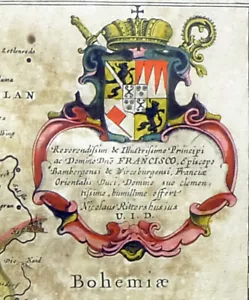 Zetlenreds
LAN
Reverendissim & Illustrissimo Principi
ac Domino Dnõ FRANCISCO, Episcopo
Bambergensi & Wirceburgensi, Franciæ
Orientalis Duci, Domino suo clemen-
tissimo, humillime offert
Nicolaus Rittershusius
U. I. D.
Bohemiæ